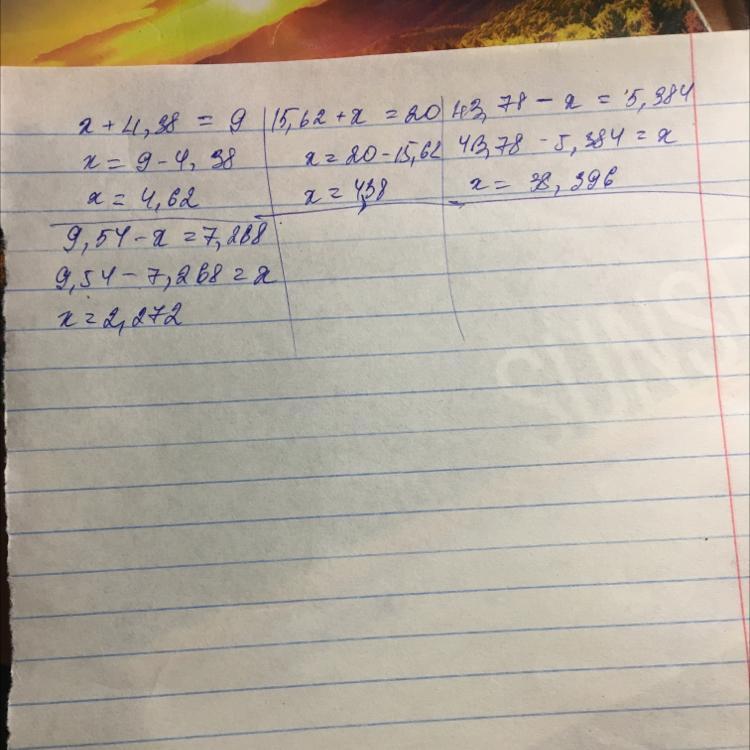 x + 4,38 = 9
x = 9 - 4,38
x = 4,62
15,62 + x = 20
x = 20 - 15,62
x = 4,38
43,78 - x = 5,384
43,78 - 5,384 = x
x = 38,396
9,54 - x = 7,268
9,54 - 7,268 = x
x = 2,272